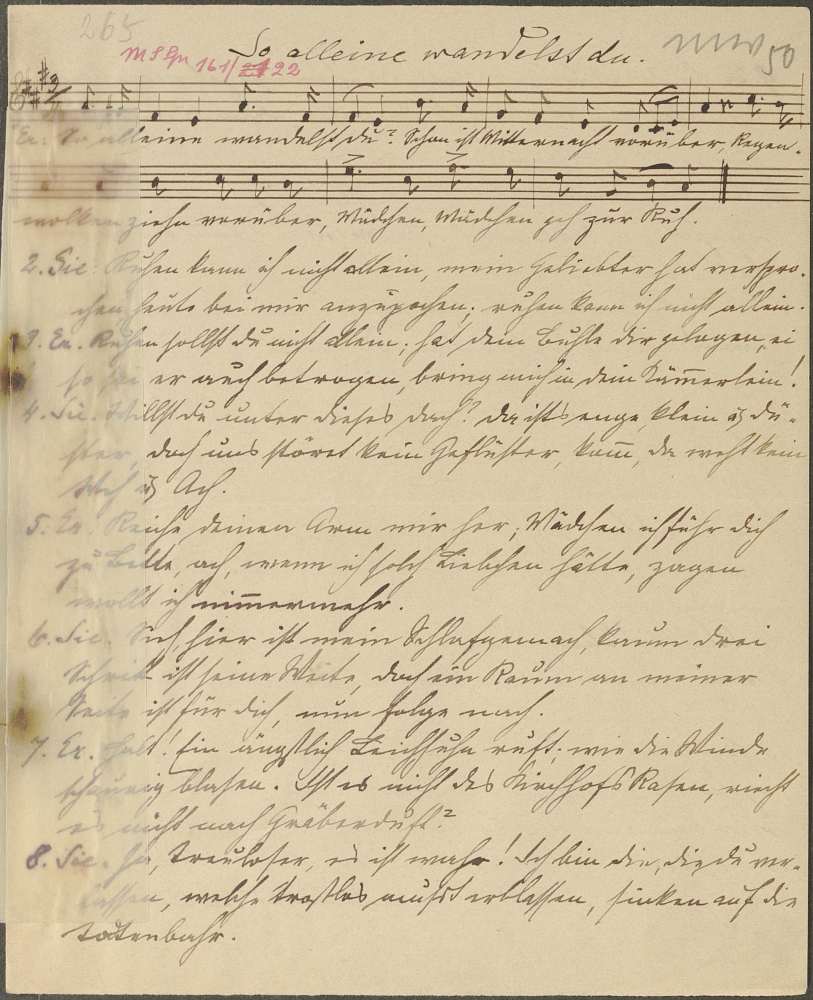 265
So alleine wandelst du.
MSGr 161/22
50
Er: So alleine wandelst du? Schon ist Mitternacht vorüber, Regen-
wolken ziehn vorüber, Mädchen, Mädchen geh zur Ruh.
2. Sie: Ruhen kann ich nicht allein, mein Geliebter hat verspro-
chen heute bei mir anzupochen; ruhen kann ich nicht allein.
3. Er. Ruhen sollst du nicht allein; hat dein Buhle dir gelogen, ei
so sei er auch betrogen, bring mich in dein Kämmerlein!
4. Sie. Willst du unter dieses Dach? Da ist's enge, klein u. dü-
ster, doch uns störet kein Geflüster, komm, da weht kein
Weh u. Ach.
5. Er. Reiche deinen Arm mir her; Mädchen ich führ dich
zu Bette, ach, wenn ich solch Liebchen hätte, zagen
wollt ich nimmermehr.
6. Sie. Sieh, hier ist mein Schlafgemach, kaum drei
Schritt ist seine Weite, doch ein Raum an meiner
Seite ist für dich, nun folge nach.
7. Er. Halt! Ein ängstlich Leichhuhn ruft; wie die Winde
schaurig blasen. Ist es nicht des Kirchhofs Rasen, riecht
es nicht nach Gräberduft?
8. Sie. Ha, Treuloser, es ist wahr! Ich bin die, die du ver-
lassen, welche trostlos musst erblassen, sinken auf die
Totenbahr.